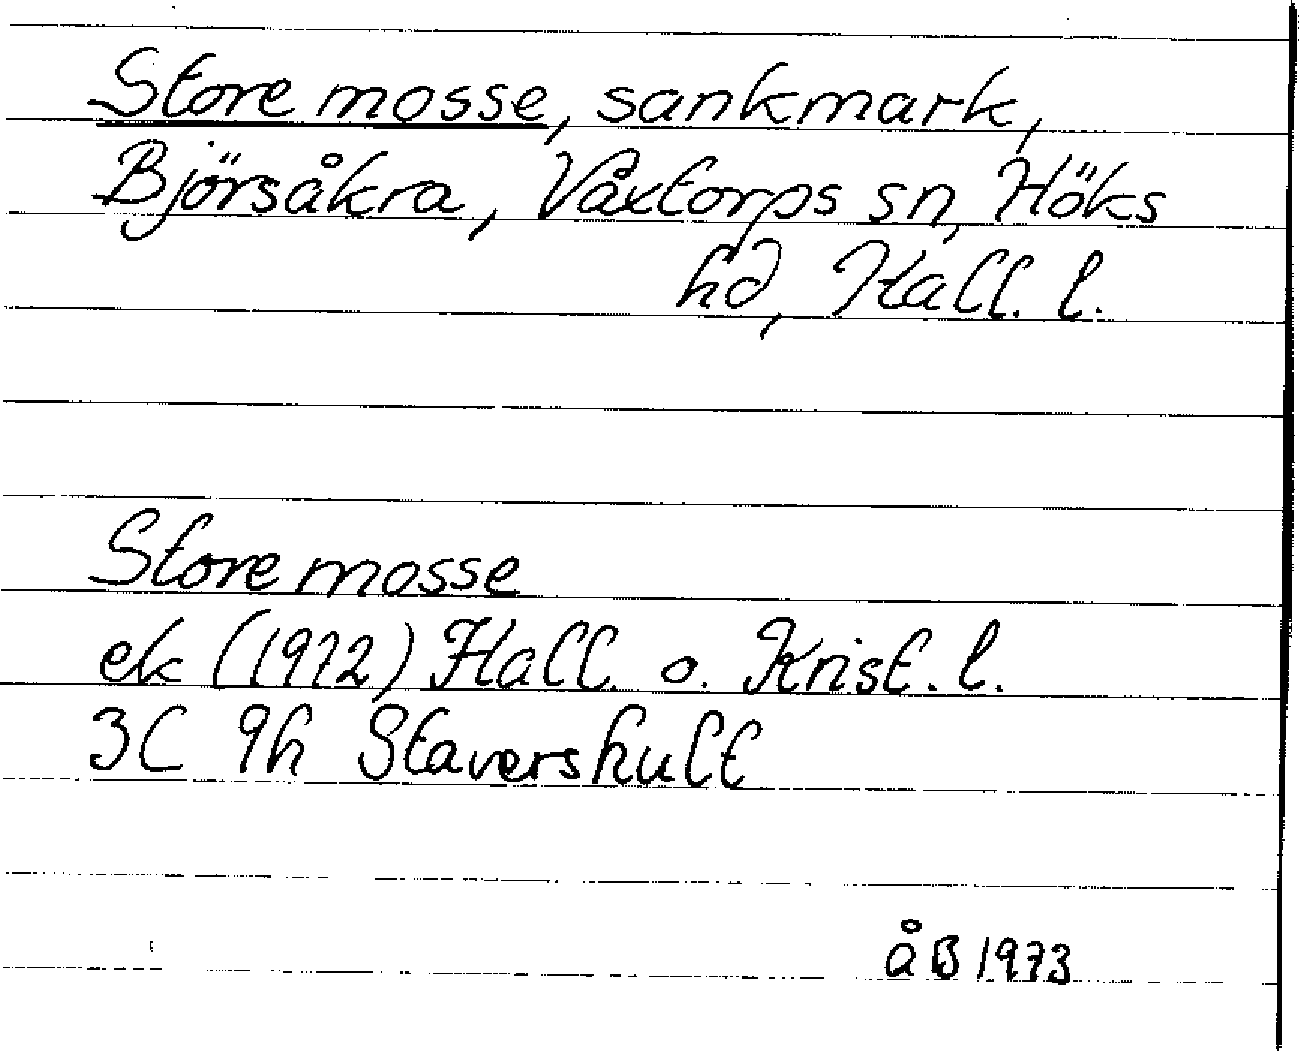 Store mosse, sankmark,
Björsåkra, Våxtorps sn, Höks
hd, Hall. l.
Store mosse
ek (1972) Hall. o. Krist. l.
3C 9h Stavershult
åB 1973